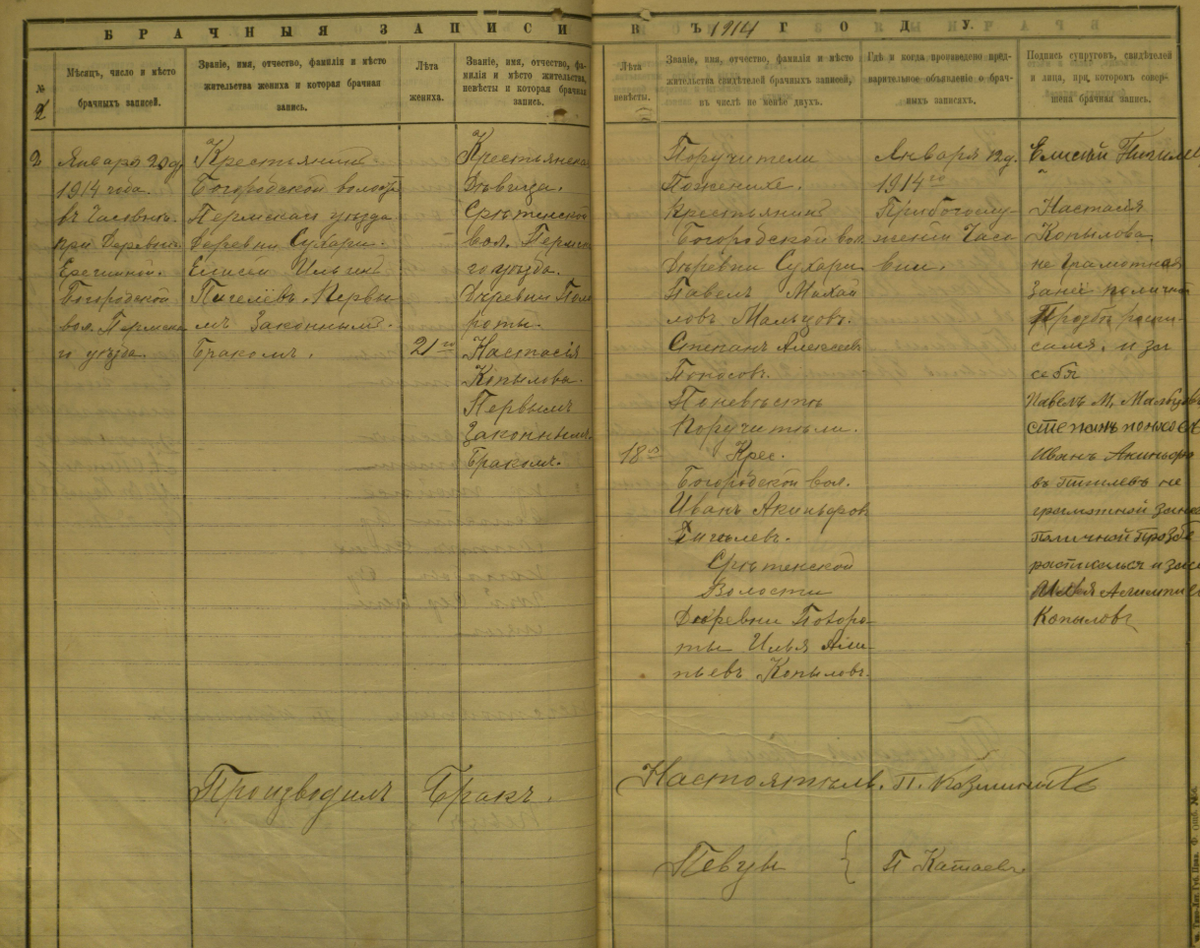 БРАЧНЫЯ ЗАПИСИ
ВЪ 1914 ГОДУ.
№
2
Мѣсяцъ, число и мѣсто
брачныхъ записей.
Званіе, имя, отчество, фамилія и мѣсто
жительства жениха и которая брачная
запись.
Лѣта
жениха.
Званіе, имя, отчество, фа-
милія и мѣсто жительства,
невѣсты и которая брачная
запись.
Лѣта
невѣсты.
Званіе, имя, отчество, фамилія и мѣсто
жительства свидѣтелей брачныхъ записей,
въ числѣ не менѣе двухъ.
Гдѣ и когда произведено пред-
варительное объявленіе о брач-
ныхъ записяхъ.
Подпись супруговъ, свидѣтелей
и лица, при которомъ совер-
шена брачная запись.
2
Января 20 д.
1914 года.
въ Часовнѣ.
при Деревни
Богородской
вол. Пермска
го уезда.
Крестьянинъ
Богородской волости
Пермскаго уезда
деревни Сухари.
Елисей Ильинъ
Пигелевъ. Первы
мъ Законнымъ.
Бракомъ.
21го
Крестьянска
Дѣвица.
Срѣтенской
вол. Пермска
го уезда.
Деревни Пово
роты.
Настасія
Копылова.
Первымъ
Законнымъ.
Бракомъ.
18
Поручители
Поженихе.
Крестьянинъ
Богородской вол.
Деревни Сухари
Павелъ Михай
ловъ Мальцовъ.
Степанъ Алексеевъ
Поносовъ.
Поневѣстѣ
Поручители.
Крес.
Богородской вол.
Иванъ Акинфов
Пигелев.
Срѣтенской
Волости
Деревни Поворо-
ты Илья Али-
пьевъ Копыловъ.
Января 12 д.
1914го
Прибогослу-
жении Часо
вни.
Елисей Пигилев
Настасия
Копылова.
не грамотная
Занеё поличной
Прозбе распи-
сался. и за
себя
Павелъ М. Мальцовъ
степанъ поносовъ
Иванъ Акинфов
въ Пигилевъ не
грамотной занево
Поличной Прозбе
росписалься и засе
Илья Алимпиев
Копыловъ
Производилъ Бракъ.
Настоятель. П.
Певцы { П Катаевъ